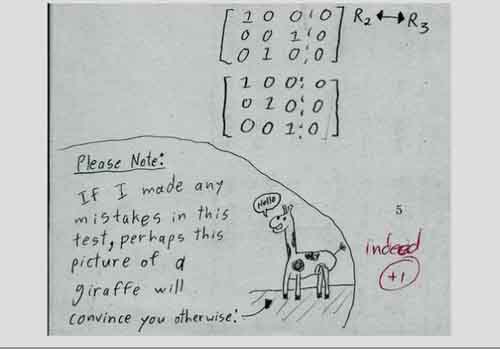 1 0 0 0 R2 ↔ R3
0 0 1 0
0 1 0 0
1 0 0 0
0 1 0 0
0 0 1 0
Please Note:
If I made any
mistakes in this
test, perhaps this
picture of a
giraffe will
convince you otherwise:
Hello
5
indeed
+1